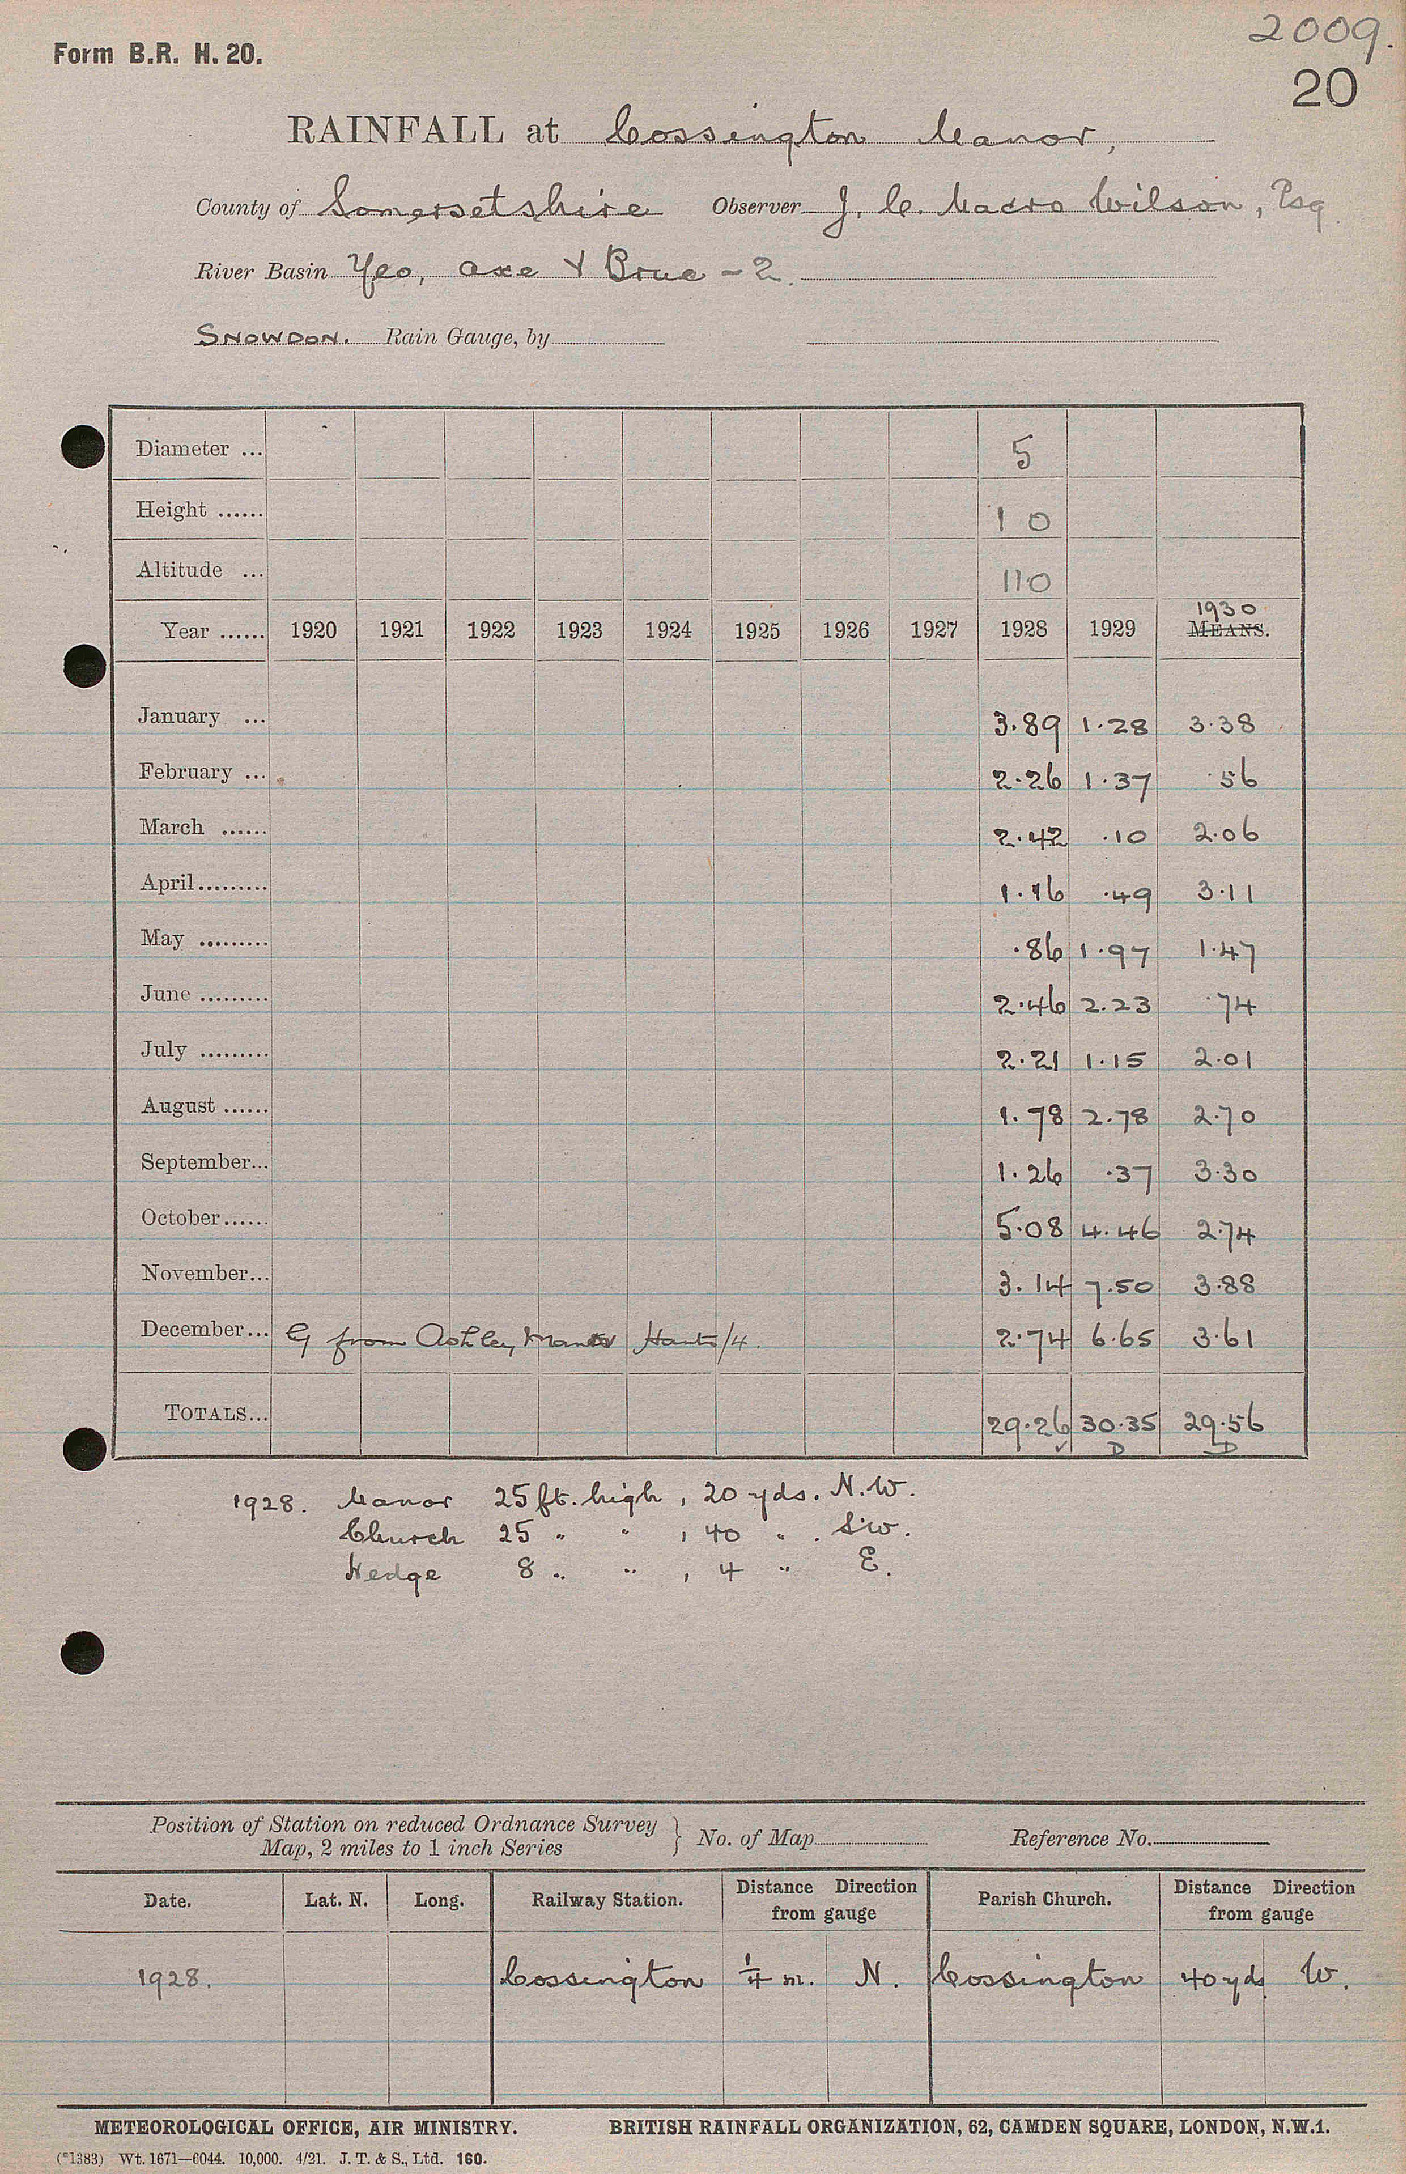 2009.
Form B.R. H. 20.
20
RAINFALL at Cossington Manor,
County of Somersetshire Observer J. C. Macro Wilson, Esq.
River Basin Yeo, Axe & Brue - 2.
SNOWDON. Rain Gauge, by
Diameter ... 5
Height ...... 1 0
Altitude ... 110
1930
Year ...... 1920 1921 1922 1923 1924 1925 1926 1927 1928 1929 MEANS.
January ... 3.89 1.28 3.38
February ... 2.26 1.37 .56
March ...... 2.42 .10 2.06
April......... 1.16 .49 3.11
May ......... .86 1.97 1.47
June ......... 2.46 2.23 .74
July ......... 2.21 1.15 2.01
August ...... 1.78 2.78 2.70
September... 1.26 .37 3.30
October...... 5.08 4.46 2.74
November... 3.14 7.50 3.88
December... G from Ashley Manor Hants/4. 2.74 6.65 3.61
TOTALS... 29.26 30.35 29.56
✓ D D
1928. Manor 25 ft. high, 20 yds. N.W.
Church 25 " " , 40 " . S.W.
Hedge 8 " " , 4 " E.
Position of Station on reduced Ordnance Survey
Map, 2 miles to 1 inch Series } No. of Map Reference No.
Date. Lat. N. Long. Railway Station. Distance Direction from gauge Parish Church. Distance Direction from gauge
1928. Cossington ¼ m. N. Cossington 40 yds W.
METEOROLOGICAL OFFICE, AIR MINISTRY. BRITISH RAINFALL ORGANIZATION, 62, CAMDEN SQUARE, LONDON, N.W.1.
(*1383) Wt. 1671—6044. 10,000. 4/21. J. T. & S., Ltd. 160.